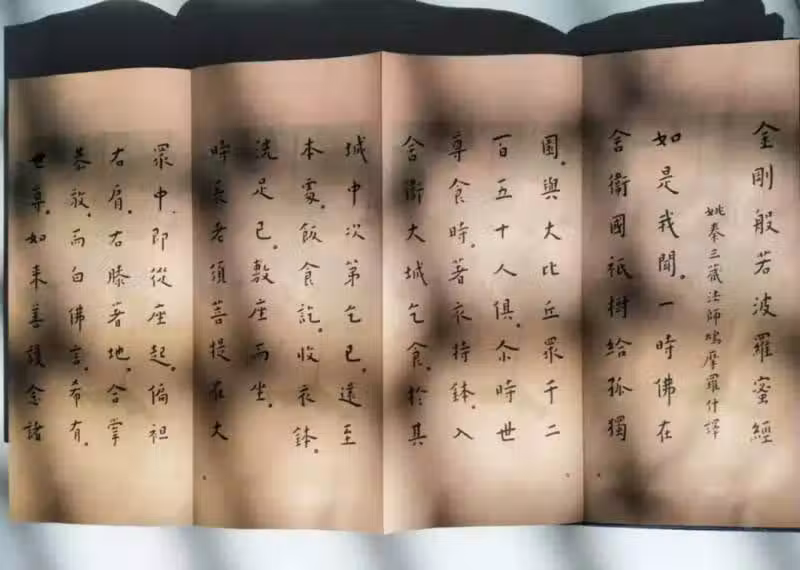 金剛般若波羅蜜經
姚秦三藏法師鳩摩羅什譯
如是我聞。一時佛在
舍衛國祇樹給孤獨
園。與大比丘眾千二
百五十人俱。尒時世
尊食時。著衣持鉢。入
舍衛大城乞食。於其
城中次第乞已。還至
本處。飯食訖。收衣鉢。
洗足已。敷座而坐。
時長老須菩提在大
眾中。即從座起。偏袒
右肩。右膝著地。合掌
恭敬。而白佛言。希有。
世尊。如來善護念諸